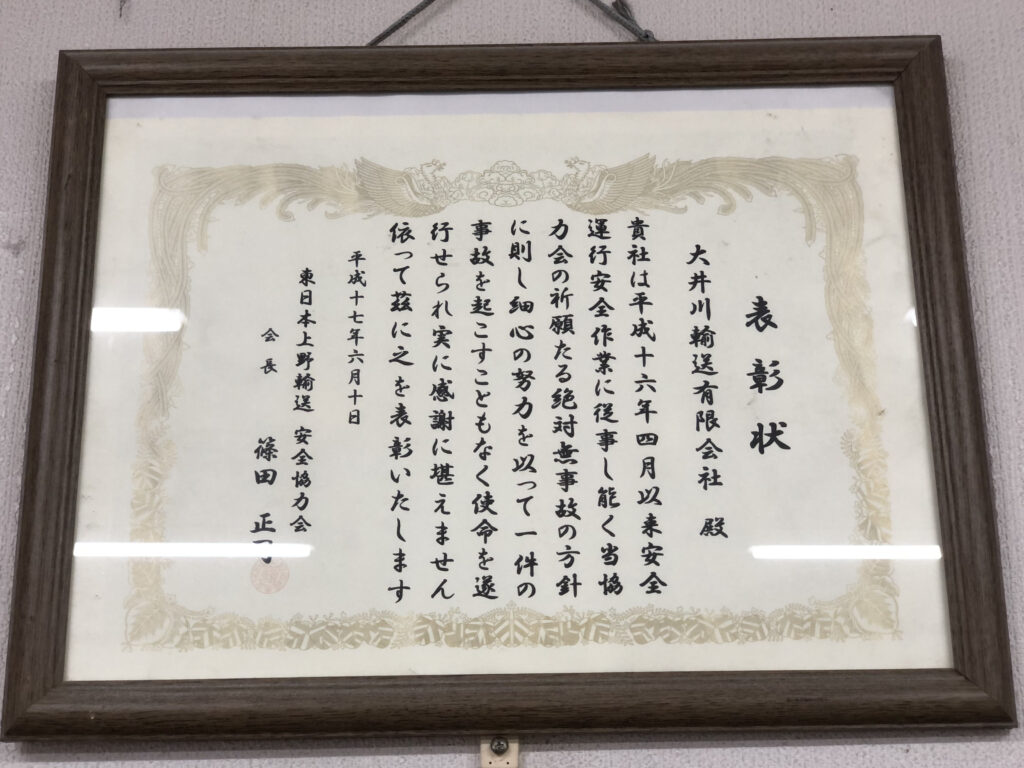 表彰状
大井川輸送有限会社 殿
貴社は平成十六年四月以来安全
運行安全作業に従事し能く当協
力会の祈願たる絶対無事故の方針
に則し細心の努力を以って一件の
事故を起こすこともなく使命を遂
行せられ実に感謝に堪えません
依って茲に之を表彰いたします
平成十七年六月十日
東日本上野輸送 安全協力会
会長 篠田 正